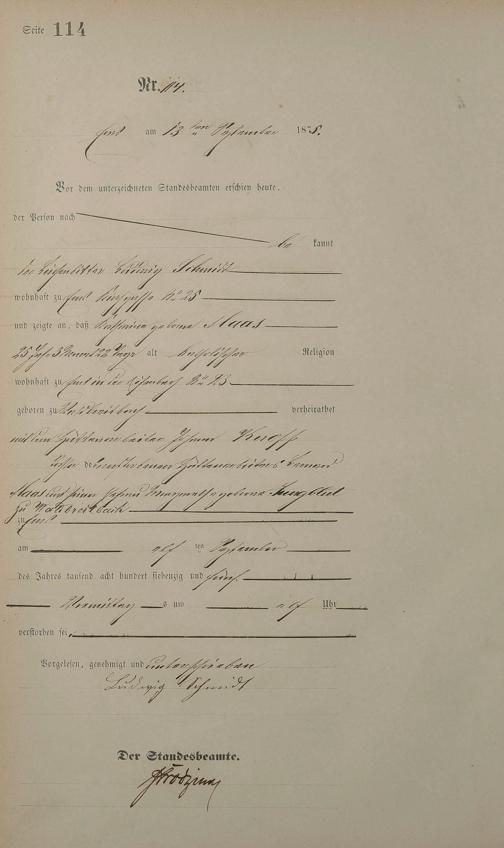 Seite 114
Nr. 114.
Ems am 13 ten September 1875.
Vor dem unterzeichneten Standesbeamten erschien heute,
der Person nach
be kannt
der Leichenbitter Ludwig Schmidt
wohnhaft zu Ems No 25
und zeigte an, daß Katharina geborne Maas
25 Jahr 3 Monat 22 Tage alt katholischer Religion
wohnhaft zu Ems in der No 23
geboren zu Waldbreitbach verheirathet
mit dem Hüttenarbeiter Johann Knopp
Tochter des verstorbenen Hüttenarbeiters
Maas und seiner Ehefrau Margaretha geborne Jungblut
zu Waldbreitbach
zu Ems
am elf ten September
des Jahres tausend acht hundert siebenzig und fünf
Vormittag s um elf Uhr
verstorben sei.
Vorgelesen, genehmigt und unterschrieben
Ludwig Schmidt
Der Standesbeamte.